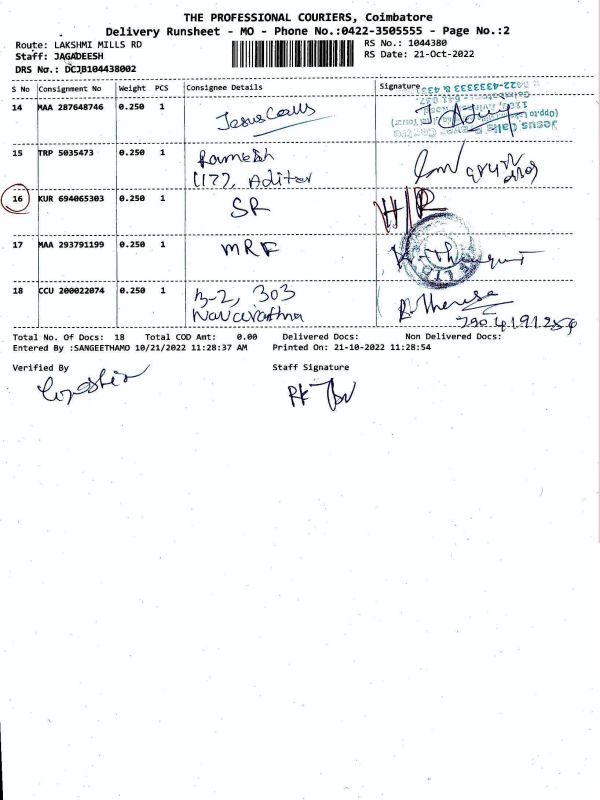 THE PROFESSIONAL COURIERS, Coimbatore
Delivery Runsheet - MO - Phone No.:0422-3505555 - Page No.:2
Route: LAKSHMI MILLS RD
RS No.: 1044380
Staff: JAGADEESH
RS Date: 21-Oct-2022
DRS No.: DCJB104438002
S No Consignment No Weight PCS Consignee Details Signature
14 MAA 287648746 0.250 1 Jesus Calls
Jesus Calls Prayer
15 TRP 5035473 0.250 1 Ramesh
(17), Aditor
16 KUR 694065303 0.250 1 SR H/R
17 MAA 293791199 0.250 1 MRF
18 CCU 200022074 0.250 1 B-2, 303 B. Theresa
Navarathna
Total No. Of Docs: 18 Total COD Amt: 0.00 Delivered Docs: Non Delivered Docs:
Entered By :SANGEETHAMO 10/21/2022 11:28:37 AM Printed On: 21-10-2022 11:28:54
Verified By Staff Signature